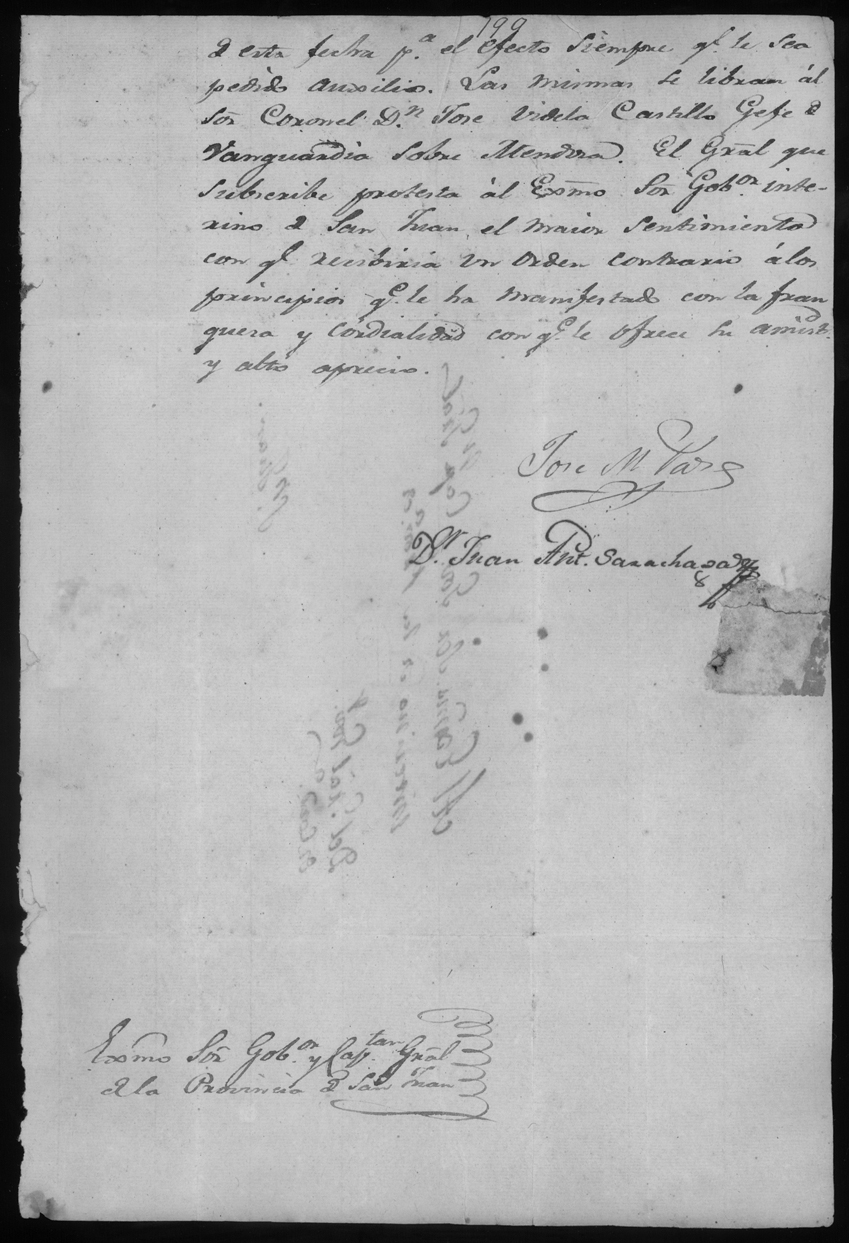 199
de esta fecha p.a el efecto siempre q.e le sea
pedido auxilio. Las mismas se libran ál
Sor Coronel D.n Jose Videla Castillo Gefe de
Vanguardia sobre Mendoza. El Gral que
subscribe protesta ál Exmo Sor Gob.or inte-
rino de San Juan el maior sentimiento
con q.e recibiria un orden contrario álos
principios q.e le ha manifestado con la fran
queza y cordialidad con q.e le ofrece su amist.d
y alto aprecio.
Jose M Paz
D.r Juan Ant. Sarachaga
Exmo Sor Gob.or y Cap.tan Gral
de la Provincia de San Juan